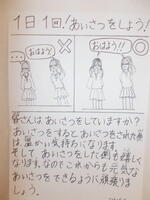 1日1回！あいさつをしよう！
おはよう！
おはよう！！
皆さんはあいさつをしていますか？
あいさつをすると、あいさつをされた側
は、温かい気持ちになります。
そして、あいさつをした側も嬉しく
なります。なのでこれからも元気な
あいさつをできるように頑張りま
しょう。